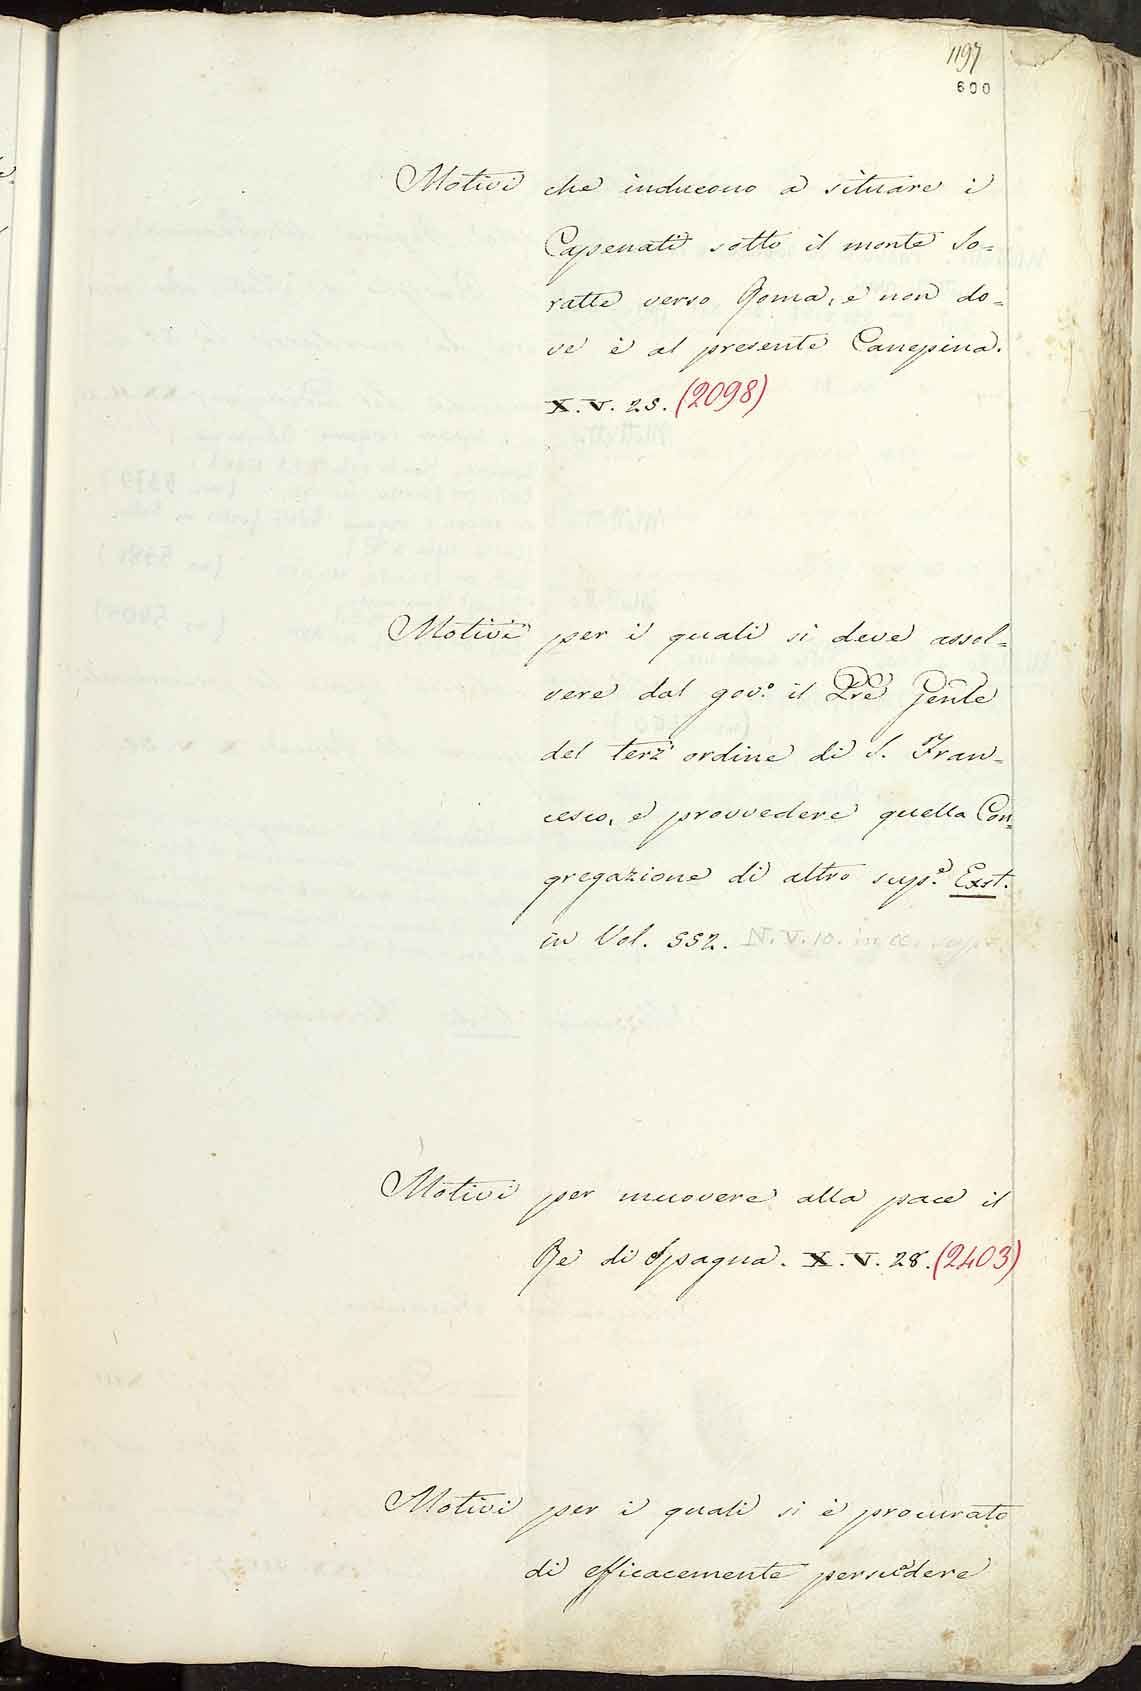 1197
600
Motivi che inducono a situare i
Capenati sotto il monte So=
ratte verso Roma, e non do=
ve è al presente Canepina.
X. V. 25. (2098)
Motivi per i quali si deve assol=
vere dal gov.º il Pre Gen͠le
del terz' ordine di S. Fran=
cesco, e provvedere quella Con=
gregazione di altro sup.e Exst.
in Vol. 552. N. V. 10. in
Motivi per muovere alla pace il
Re di Spagna. X. V. 28. (2403)
Motivi per i quali si è procurato
di efficacemente persuadere